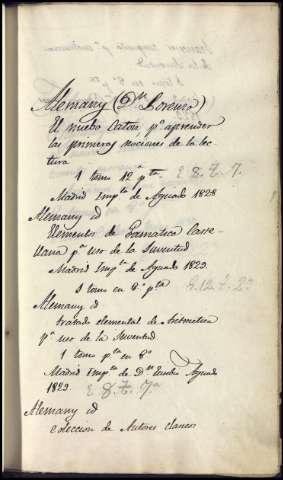 Alemany (Dn Lorenzo)
El nuebo Caton pa aprender
las primeras nociones de la lec
tura
1 tomo 12º pta E. 8. T. 7.
Madrid Impta de Aguado 1828
Alemany id
Elementos de Gramatica Caste-
llana pa uso de la Juventud
Madrid Impta de Aguado 1829
1 tomo en 8º pta E. 12. T. 2º
Alemany id
tratado elemental de Aritmetica
pa uso de la Juventud
1 tomo pta en 8º
Madrid Impta de Dn Aguado
1829. E. 8. T. 7º
Alemany id
coleccion de Autores clasicos